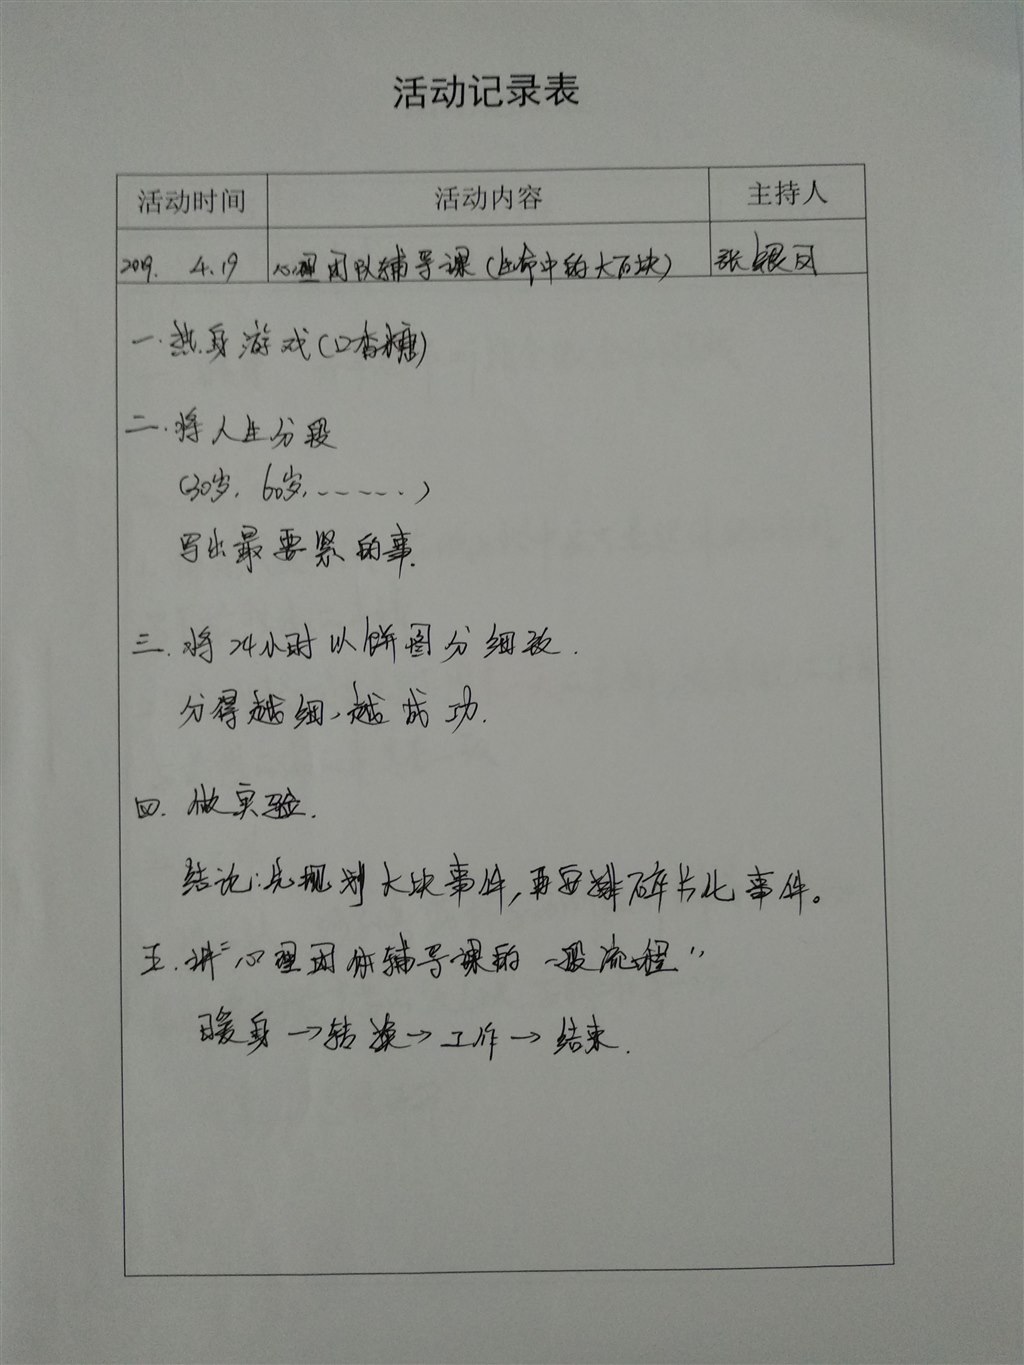 活动记录表
活动时间 活动内容 主持人
2019. 4.19 心理团队辅导课(生命中的大石块) 张银凤
一.热身游戏(口香糖)
二.将人生分段
(30岁.60岁.……)
写出最要紧的事.
三.将24小时以饼图分细致.
分得越细、越成功.
四.做实验.
结论:先规划大块事件,再安排碎片化事件。
五.讲“心理团体辅导课的一般流程”
暖身→转换→工作→结束.